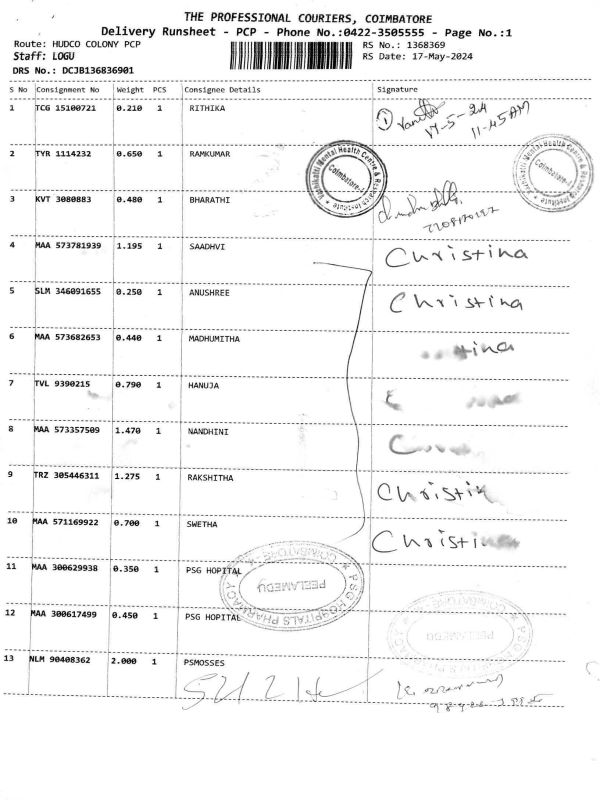 THE PROFESSIONAL COURIERS, COIMBATORE
Delivery Runsheet - PCP - Phone No.:0422-3505555 - Page No.:1
Route: HUDCO COLONY PCP RS No.: 1368369
Staff: LOGU RS Date: 17-May-2024
DRS No.: DCJB136836901
S No Consignment No Weight PCS Consignee Details Signature
1 TCG 15100721 0.210 1 RITHIKA
17-5-24
11-45AM
2 TYR 1114232 0.650 1 RAMKUMAR
3 KVT 3080883 0.480 1 BHARATHI
4 MAA 573781939 1.195 1 SAADHVI Christina
5 SLM 346091655 0.250 1 ANUSHREE Christina
6 MAA 573682653 0.440 1 MADHUMITHA
7 TVL 9390215 0.790 1 HANUJA
8 MAA 573357509 1.470 1 NANDHINI
9 TRZ 305446311 1.275 1 RAKSHITHA Christin
10 MAA 571169922 0.700 1 SWETHA Christina
11 MAA 300629938 0.350 1 PSG HOPITAL
12 MAA 300617499 0.450 1 PSG HOPITAL
PSG HOSPITALS PHARMACY
COIMBATORE
PEELAMEDU
PSG HOSPITALS PHARMACY
COIMBATORE
PEELAMEDU
13 NLM 90408362 2.000 1 PSMOSSES